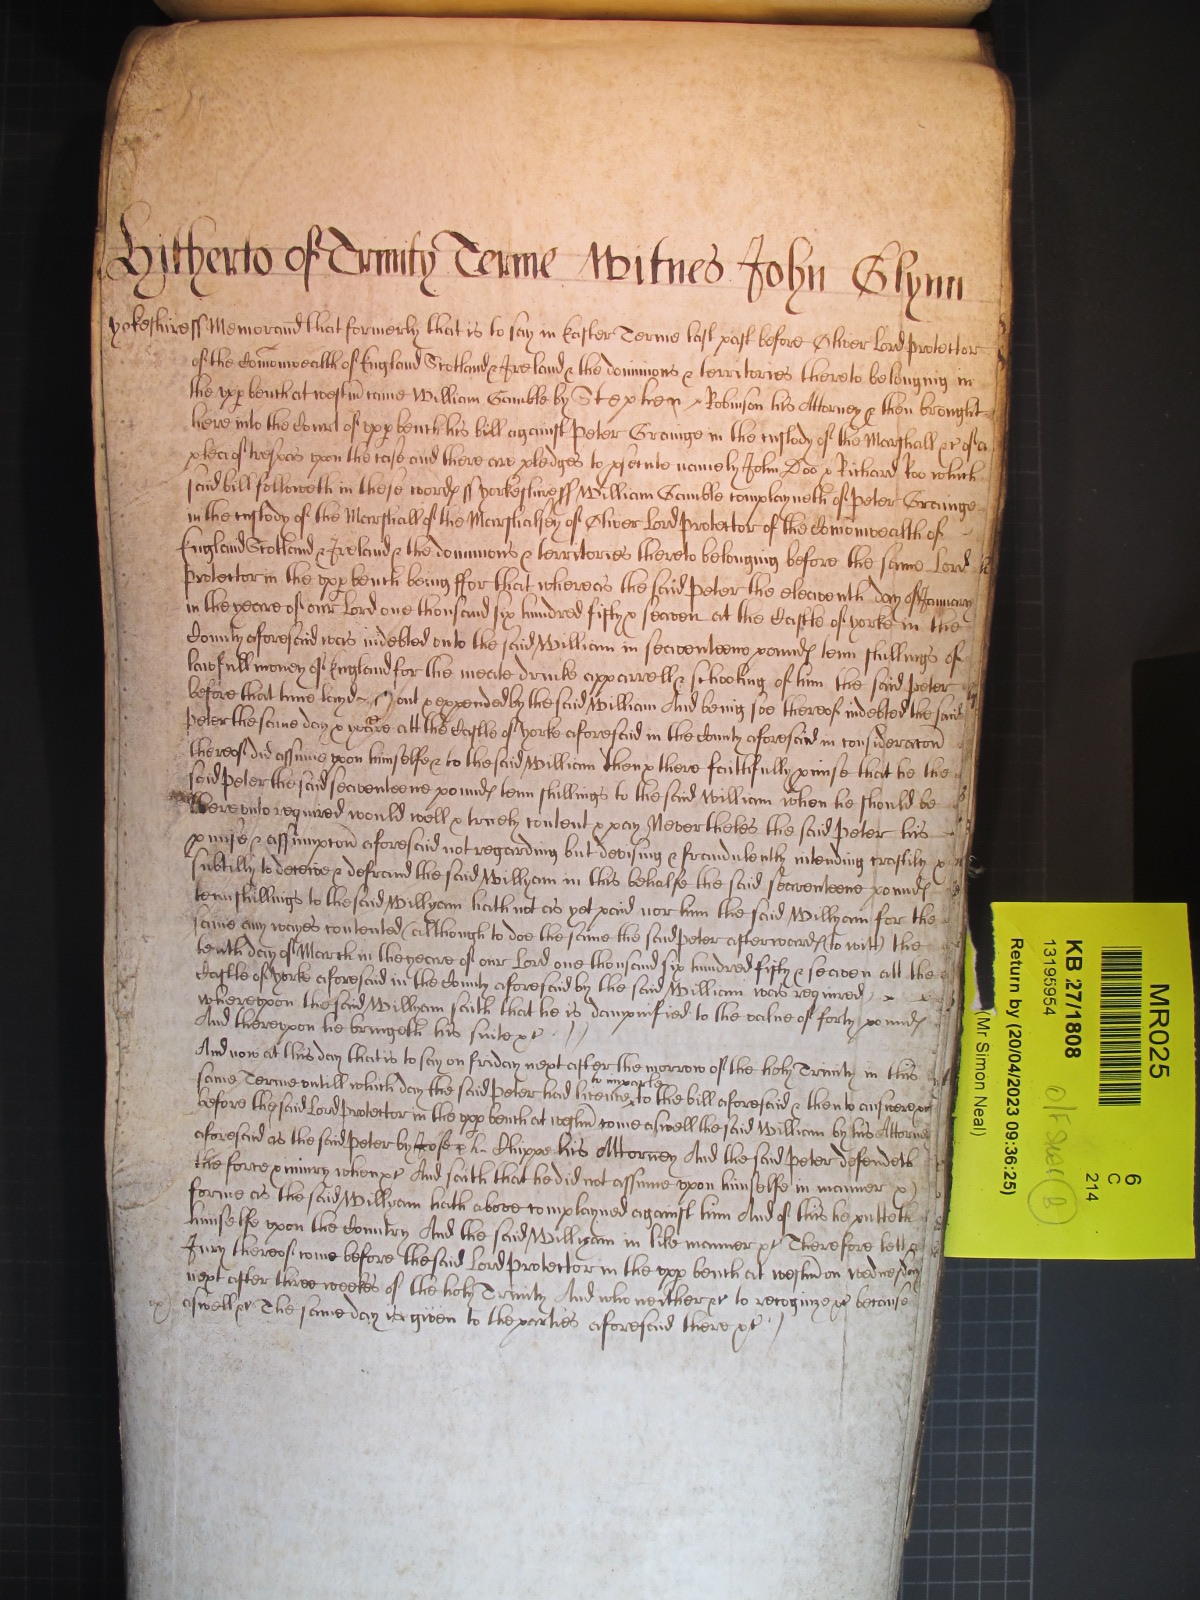 Hitherto of Trinity Terme Witnes John Glynn
Yorkeshire ss Memorand that formerly that is to say in Easter Terme last past before Oliver Lord Protector
of the Comonwealth of England Scotland & Ireland & the dominions & territories thereto belonging in
the upp bench at westm came William Gamble by Stephen Robinson his Attorney & then brought
here into the Court of upp bench his bill against Peter Grainge in the custody of the Marshall &c of a
plea of trespas upon the case and there are pledges to psecute namely John Doo & Richard Roo which
said bill followeth in these words ss Yorkeshire ss William Gamble complayneth of Peter Grainge
in the custody of the Marshall of the Marshalsey of Oliver Lord Protector of the Comonwealth of
England Scotland & Ireland & the dominions & territories thereto belonging before the same Lord
Protector in the upp bench being ffor that whereas the said Peter the eleaventh day of January
in the yeare of our Lord one thousand six hundred fifty & seaven at the Castle of Yorke in the
County aforesaid was indebted unto the said William in seaventeene pounds tenn shillings of
lawfull money of England for the meate drinke apparrell & schooling of him the said Peter
before that time layd out & expended by the said William And being soe thereof indebted the said
Peter the same day & yeare att the Castle of Yorke aforesaid in the County aforesaid in consideracon
thereof did assume upon himselfe & to the said William then & there faithfully pmise that he the
said Peter the said seaventeene pounds tenn shillings to the said William when he should be
thereunto required would well & truely content & pay Neverthelės the said Peter his
pmise & assumpcon aforesaid not regarding but devising & fraudulently intending craftily &
subtilly to deceive & defraud the said Willyam in this behalfe the said seaventeene pounds
tenn shillings to the said Willyam hath not as yet paid nor him the said Willyam for the
same any wayes contented (although to doe the same the said Peter afterwards (to wit) the
tenth day of March in the yeare of our Lord one thousand six hundred fifty & seaven att the
Castle of Yorke aforesaid in the County aforesaid by the said William was required
whereupon the said Willyam saith that he is dampnified to the value of forty pounds
And thereupon he bringeth his suite &c
And now at this day that is to say on friday next after the morrow of the holy Trinity in this
same Terme untill which day the said Peter had licence to imparle to the bill aforesaid & then to answere &c
before the said Lord Protector in the upp bench at westm come aswell the said William by his Attorney
aforesaid as the said Peter by his Attorney And the said Peter defendeth
the force & iniury when &c And saith that he did not assume upon himselfe in manner &
forme as the said Willyam hath above complayned against him And of this he putteth
himselfe upon the Country And the said Willyam in like manner &c Therefore lett a
Jury thereof come before the said Lord Protector in the upp bench at westm on wednesday
next after three weekes of the holy Trinity And who neither &c to recognize &c because
aswell &c The same day is given to the parties aforesaid there &c
MR025
6
C
214
KB 27/1808
13195954
Return by (20/04/2023 09:36:25)
(Mr Simon Neal)